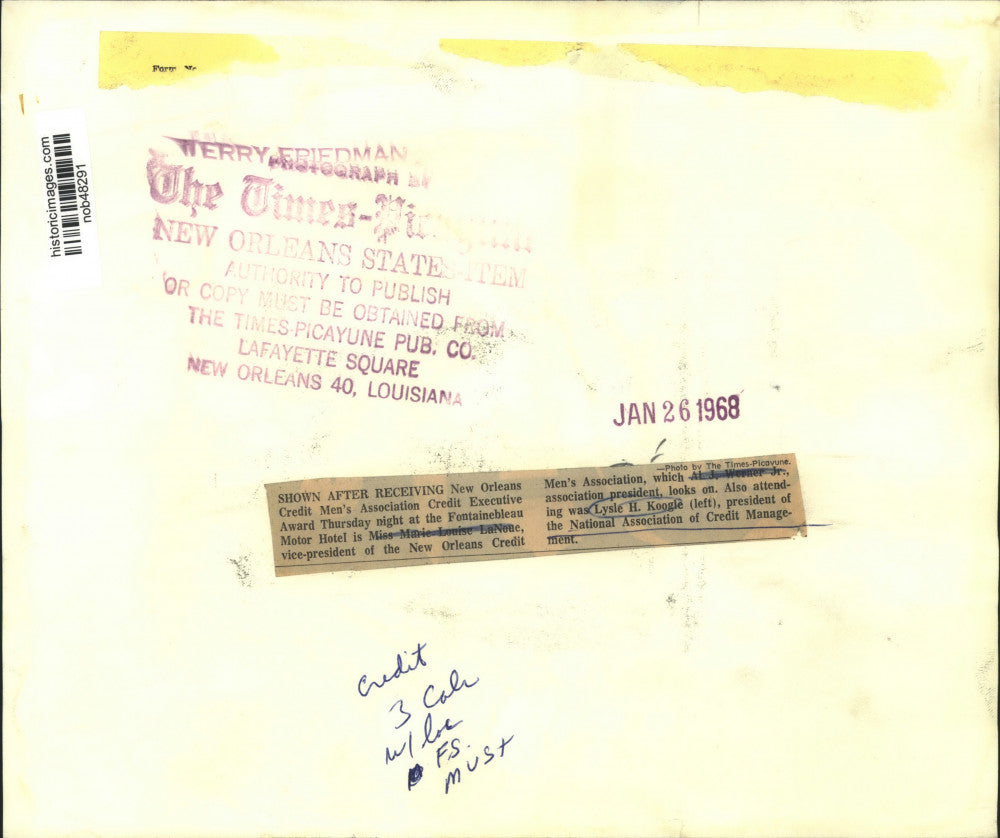 Form No
historicimages.com
nob48291
TERRY FRIEDMAN
PHOTOGRAPH BY
The Times-Picayune
NEW ORLEANS STATES-ITEM
AUTHORITY TO PUBLISH
OR COPY MUST BE OBTAINED FROM
THE TIMES-PICAYUNE PUB. CO.
LAFAYETTE SQUARE
NEW ORLEANS 40, LOUISIANA
JAN 26 1968
SHOWN AFTER RECEIVING New Orleans
Credit Men's Association Credit Executive
Award Thursday night at the Fontainebleau
Motor Hotel is Miss Marie Louise LaNoue,
vice-president of the New Orleans Credit
—Photo by The Times-Picayune.
Men's Association, which Al J. Werner Jr.,
association president, looks on. Also attend-
ing was Lysle H. Koogle (left), president of
the National Association of Credit Manage-
ment.
credit
3 Col
w/
FS.
MUST